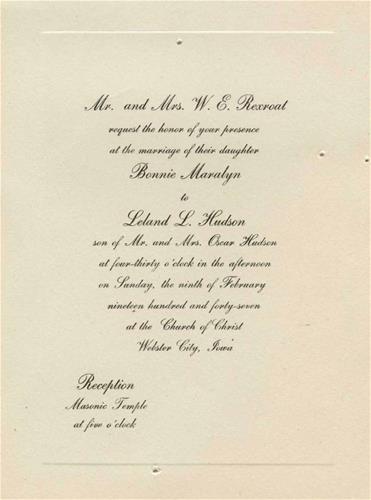 Mr. and Mrs. W. E. Rexroat
request the honor of your presence
at the marriage of their daughter
Bonnie Maralyn
to
Leland L. Hudson
son of Mr. and Mrs. Oscar Hudson
at four-thirty o'clock in the afternoon
on Sunday, the ninth of February
nineteen hundred and forty-seven
at the Church of Christ
Webster City, Iowa
Reception
Masonic Temple
at five o'clock